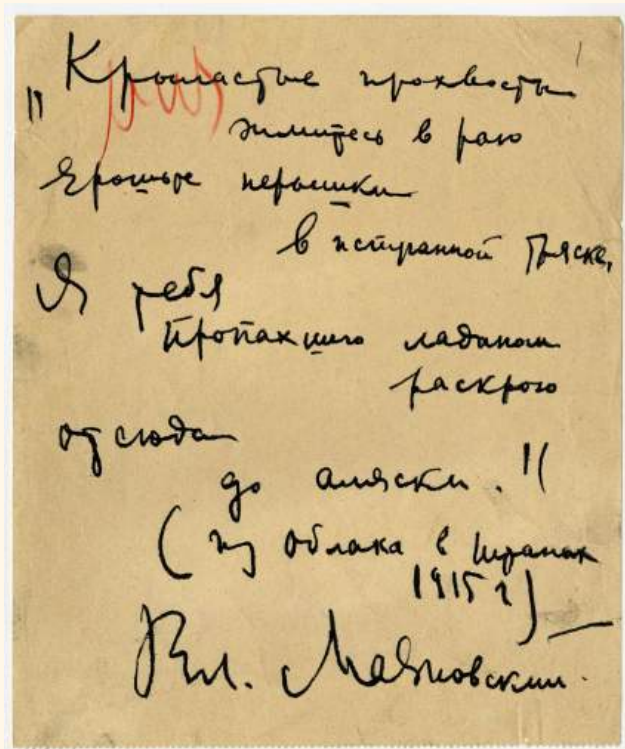 "Крыластые прохвосты
жмитесь в раю
Ярошьте перышки
в испуганной тряске,
Я тебя
пропахшего ладаном
раскрою
отсюда
до аляски."
(из Облака в штанах
1915 г)
Вл. Маяковский.